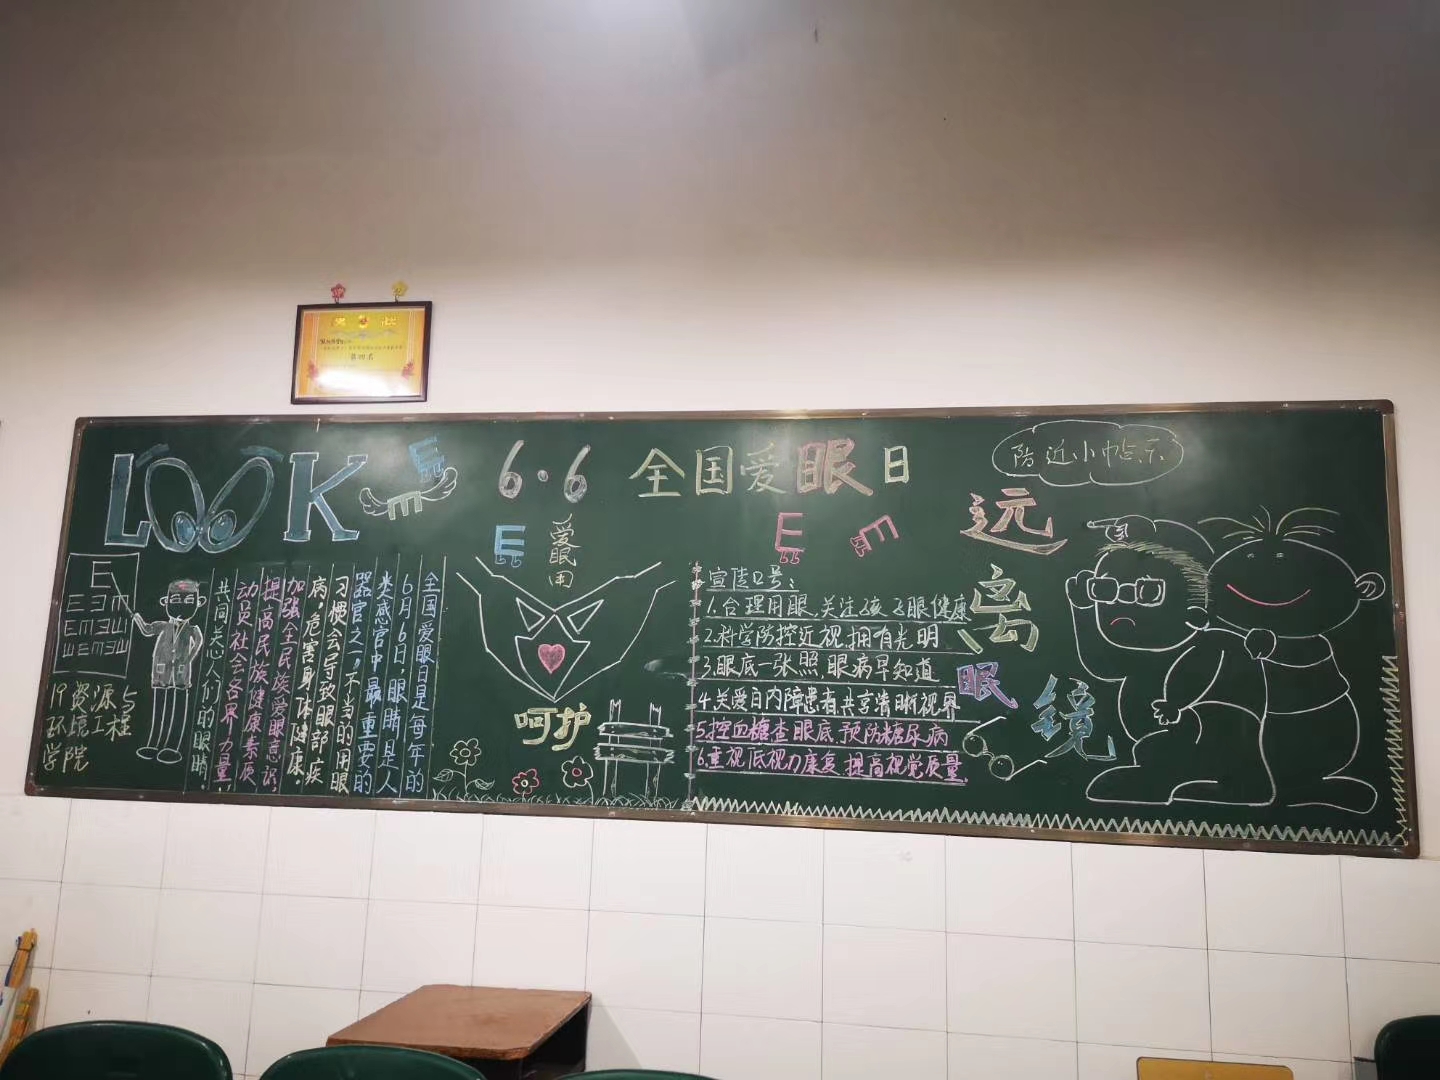 奖状
第四名
LOOK
E
6·6 全国爱眼日
防近小帖示
E
E
E
E
E
E Ǝ m
E m Ǝ ш
ш E m Ǝ ш
19资源与
环境工程
学院
全国爱眼日是每年的
6月6日,眼睛是人
类感官中最重要的
器官之一,不当的用眼
习惯会导致眼部疾
病,危害身体健康.
加强全民族爱眼意识,
提高民族健康素质
动员社会各界力量,
共同关心人们的眼睛.
爱眼周
呵护
宣传口号:
1.合理用眼,关注孩子眼健康
2.科学防控近视,拥有光明
3.眼底一张照,眼病早知道
4.关爱白内障患者,共享清晰视界
5.控血糖查眼底,预防糖尿病
6.重视低视力康复,提高视觉质量.
远离眼镜